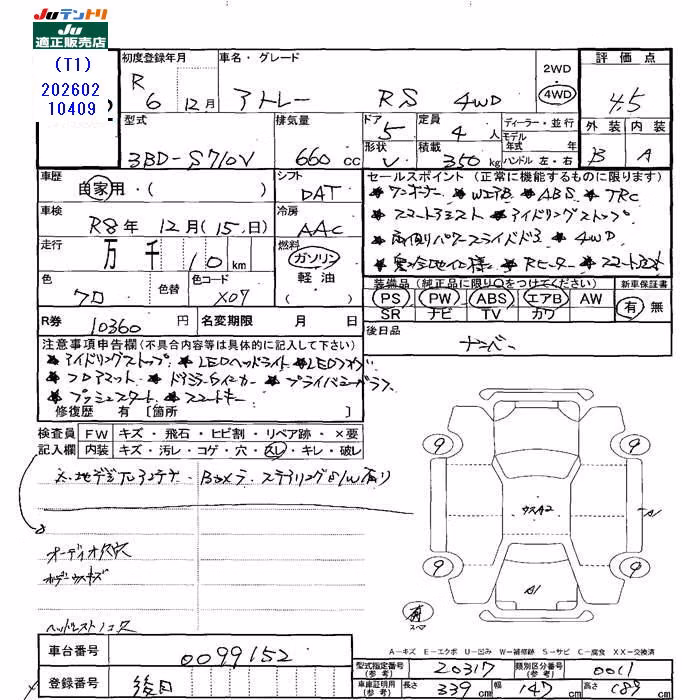 Juテントリ
Ju
適正販売店
(T1)
202602
10409
初度登録年月
R 6 12月
車名・グレード
アトレー RS 4WD
2WD
4WD
評価点
4.5
外装 内装
B A
型式
3BD-S710V
排気量
660 cc
ドア
5
定員
4 人
形状
V
積載
350 kg
ディーラー・並行
モデル年式 年式
ハンドル 左・右
車歴
自家用・( )
シフト
DAT
車検
R8年 12月(15日)
冷房
AAC
走行
万 千 10 km
燃料
ガソリン
軽油
( )
色
クロ
色替
色コード
X07
R券
10360 円
名変期限 月 日
セールスポイント (正常に機能するものに限ります)
★ワンオーナー ★WエアB ★ABS ★TRC
★スマートアシスト ★アイドリングストップ
★両側パワースライドドア ★4WD
★寒冷地仕様 ★Rヒーター
装備品 (純正品に限り○をつけてください)
PS PW ABS エアB AW
SR ナビ TV カワ
新車保証書
有 無
後日品
ナンバー
注意事項申告欄(不具合内容等は具体的に記入して下さい)
★アイドリングストップ ★LEDヘッドライト ★LEDフォグ
★フロアマット ★ドアミラーウィンカー ★プライバシーガラス
★プッシュスタート ★スマートキー
修復歴 有 [箇所 ]
検査員記入欄
FW キズ・飛石・ヒビ割・リペア跡・×要
内装 キズ・汚レ・コゲ・穴・スレ・キレ・破レ
地デジTVアンテナ Bカメラ ステアリングS/W有り
オーディオレス
ウスキズ
9
9
9
9
ウスA2
A1
A1
有
スペア
A－キズ E－エクボ U－凹み W－補修跡 S－サビ C－腐食 XX－交換済
車台番号
0099152
登録番号
後日
型式指定番号
(参考)
20317
類別区分番号
(参考)
0011
車庫証明用
(参考)
長さ 339 cm
幅 147 cm
高さ 189 cm